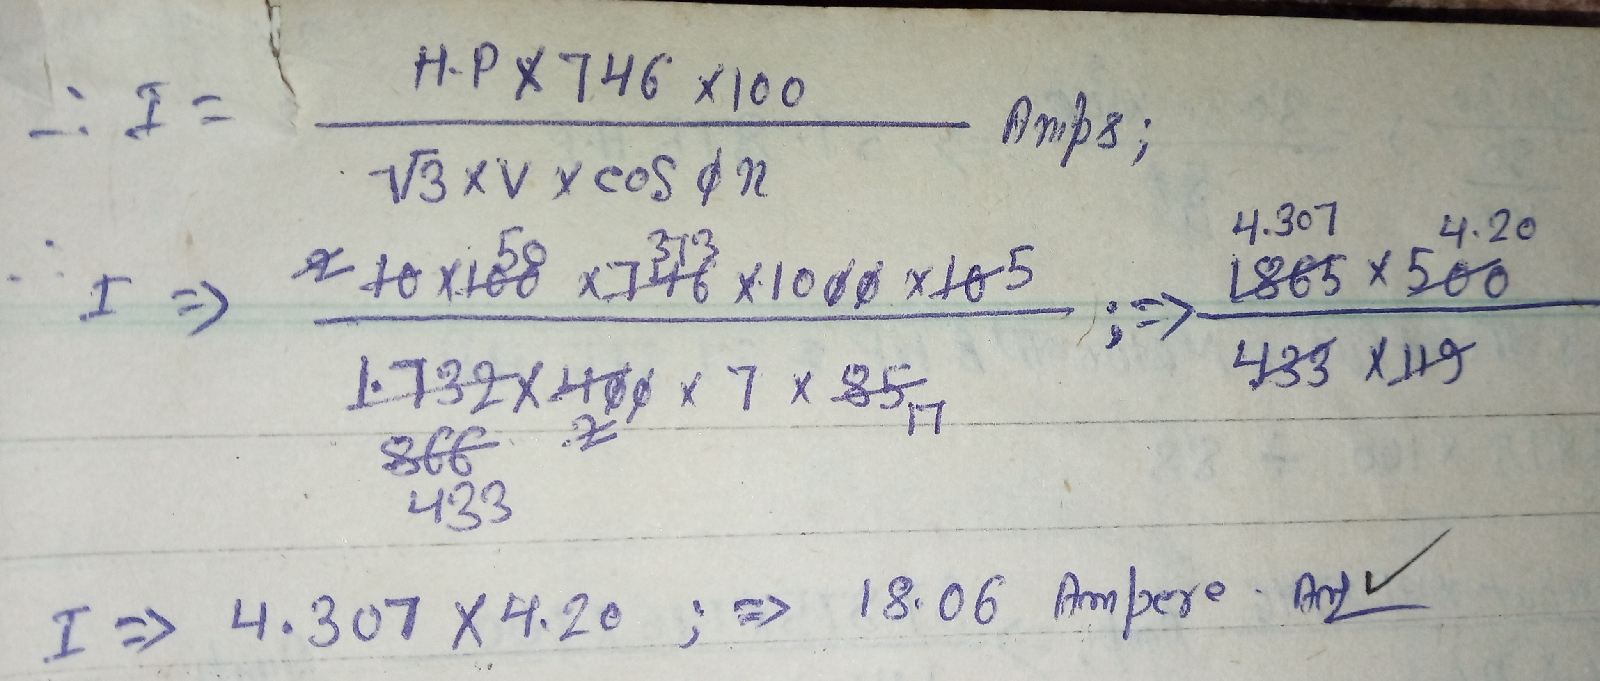 ∴ I = H.P × 746 × 100 / √3 × V × cos φ η Amps;
∴ I ⇒ 2 10 × 100 50 × 746 373 × 1000 × 10 5 / 1.732 866 433 × 400 2 × 7 × 85 17 ; ⇒ 4.307 1865 × 500 4.20 / 433 × 119
I ⇒ 4.307 × 4.20 ; ⇒ 18.06 Ampere. Ans ✓